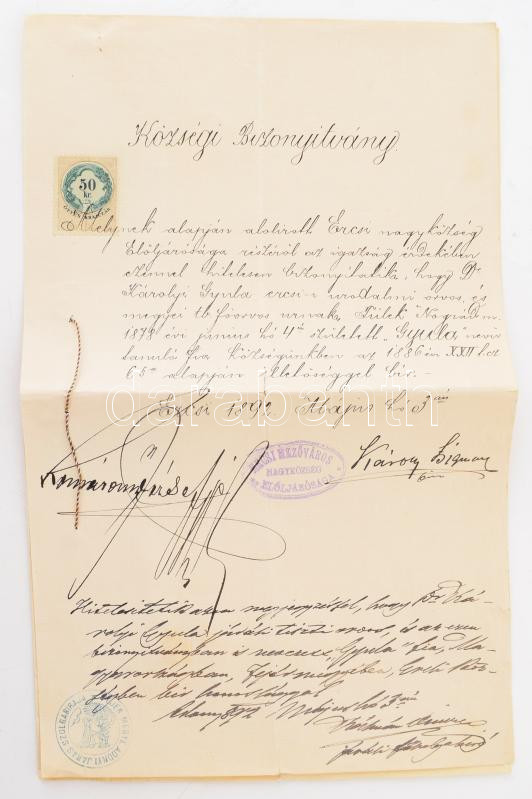 Községi Bizonyitvány.
50
kr.
Melynek alapján alolirott Ercsi nagyközség
Elöljárósága részéről az igazság érdekében
ezennel hitelesen bizonyittatik, hogy Dr
Károlyi Gyula ercsi-i uradalmi orvos, és
megyei tb. főorvos urnak, Fülek Nográdm.
1878 évi junius hó 4én született "Gyula" nevü
tanuló fia községünkben az 1886 évi XXII t. cz.
6 § alapján illetőséggel bir. –
Ercsi 1892 Május hó 3án
ERCSI MEZŐVÁROS
NAGYKÖZSÉG
ELŐLJÁRÓSÁGA
Károly Zsigmon
Hitelesittetik azon megjegyzéssel, hogy Dr Ká-
rolyi Gyula járási tiszti orvos, és az ezen
bizonyitványban is nevezett "Gyula" fia, Ma-
gyarországban, Fejérmegyében, Ercsi köz-
ségben bir
Adony 892 Május hó 3án
ADONYI JÁRÁS SZOLGABIRÁJA
darabanth